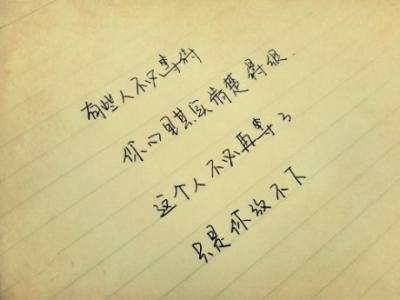 有些人不必等待
你心里其实清楚得很
这个人不必再等了
只是你放不下